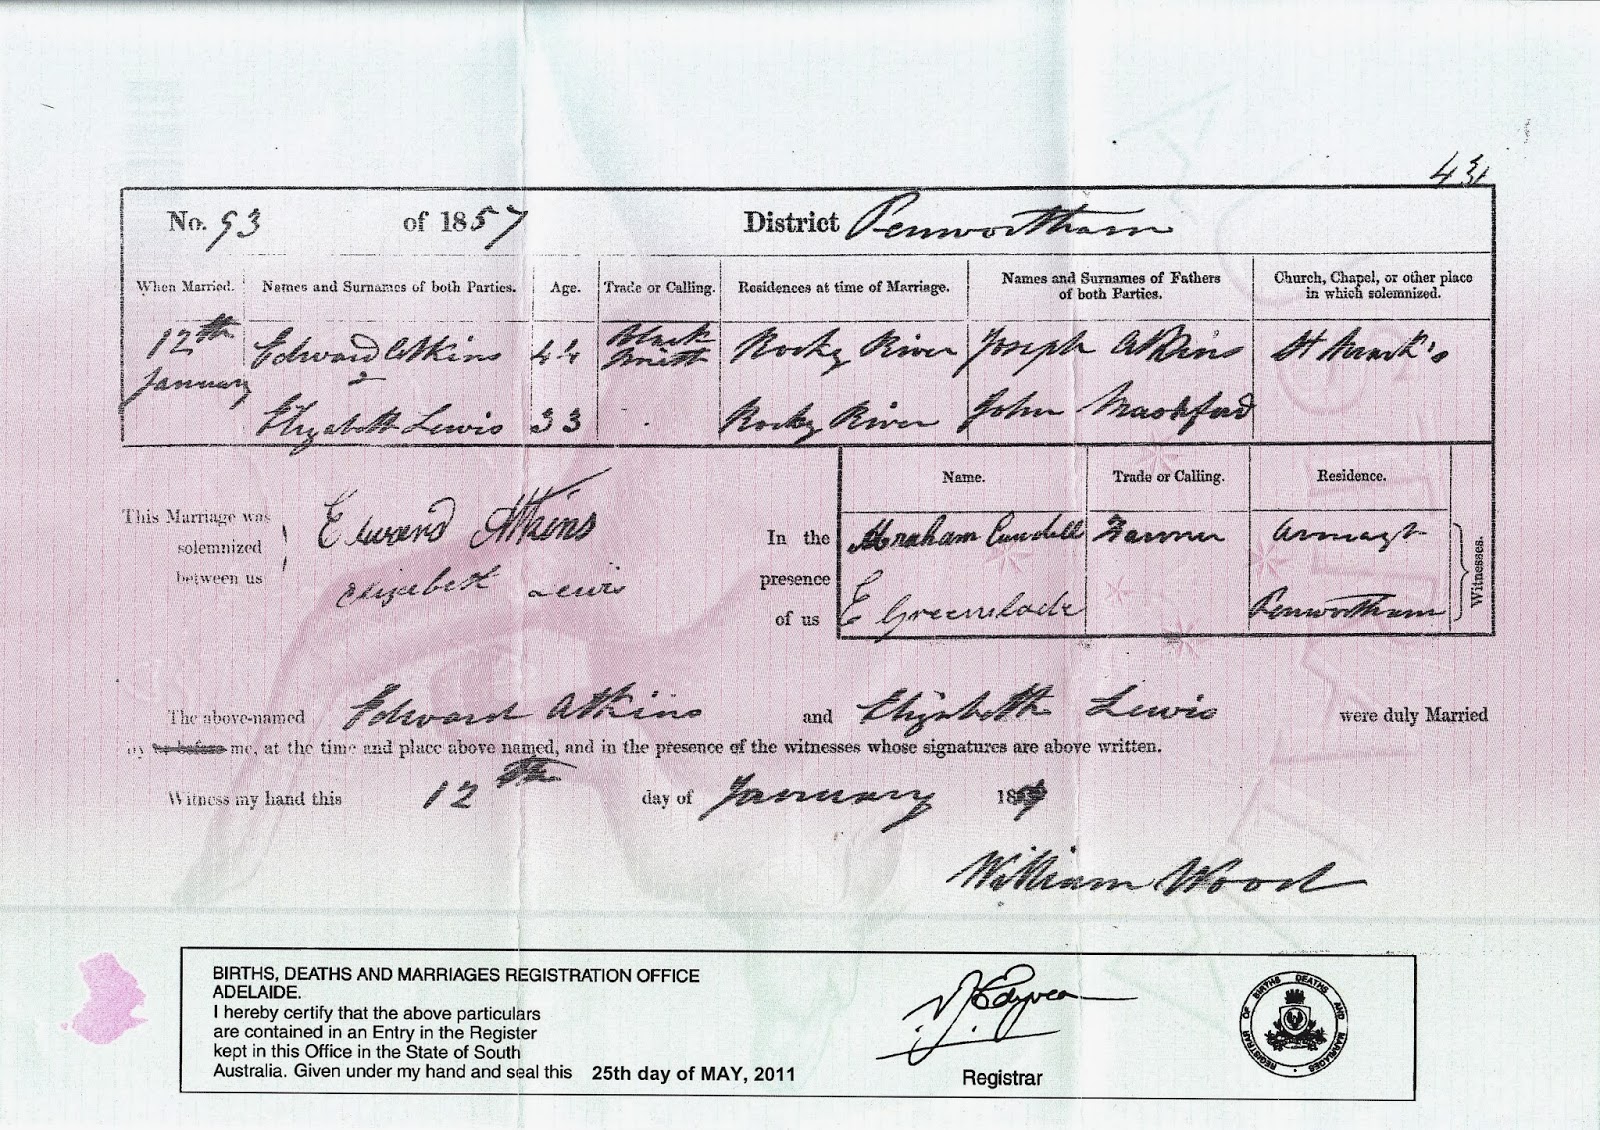 434
No. 93 of 1857 District Penwortham
When Married. Names and Surnames of both Parties. Age. Trade or Calling. Residences at time of Marriage. Names and Surnames of Fathers of both Parties. Church, Chapel, or other place in which solemnized.
12th January Edward Atkins 44 Black Smith Rocky River Joseph Atkins St Mark's
Elizabeth Lewis 33 Rocky River John
This Marriage was solemnized between us
Edward Atkins
Elizabeth Lewis
In the presence of us
Name. Trade or Calling. Residence.
Abraham Farmer Armagh
E Greenslade Penwortham
Witnesses.
The above-named Edward Atkins and Elizabeth Lewis were duly Married
by or before me, at the time and place above named, and in the presence of the witnesses whose signatures are above written.
Witness my hand this 12th day of January 1857
William Wood
BIRTHS, DEATHS AND MARRIAGES REGISTRATION OFFICE
ADELAIDE.
I hereby certify that the above particulars
are contained in an Entry in the Register
kept in this Office in the State of South
Australia. Given under my hand and seal this 25th day of MAY, 2011
Registrar
REGISTRAR OF BIRTHS DEATHS AND MARRIAGES